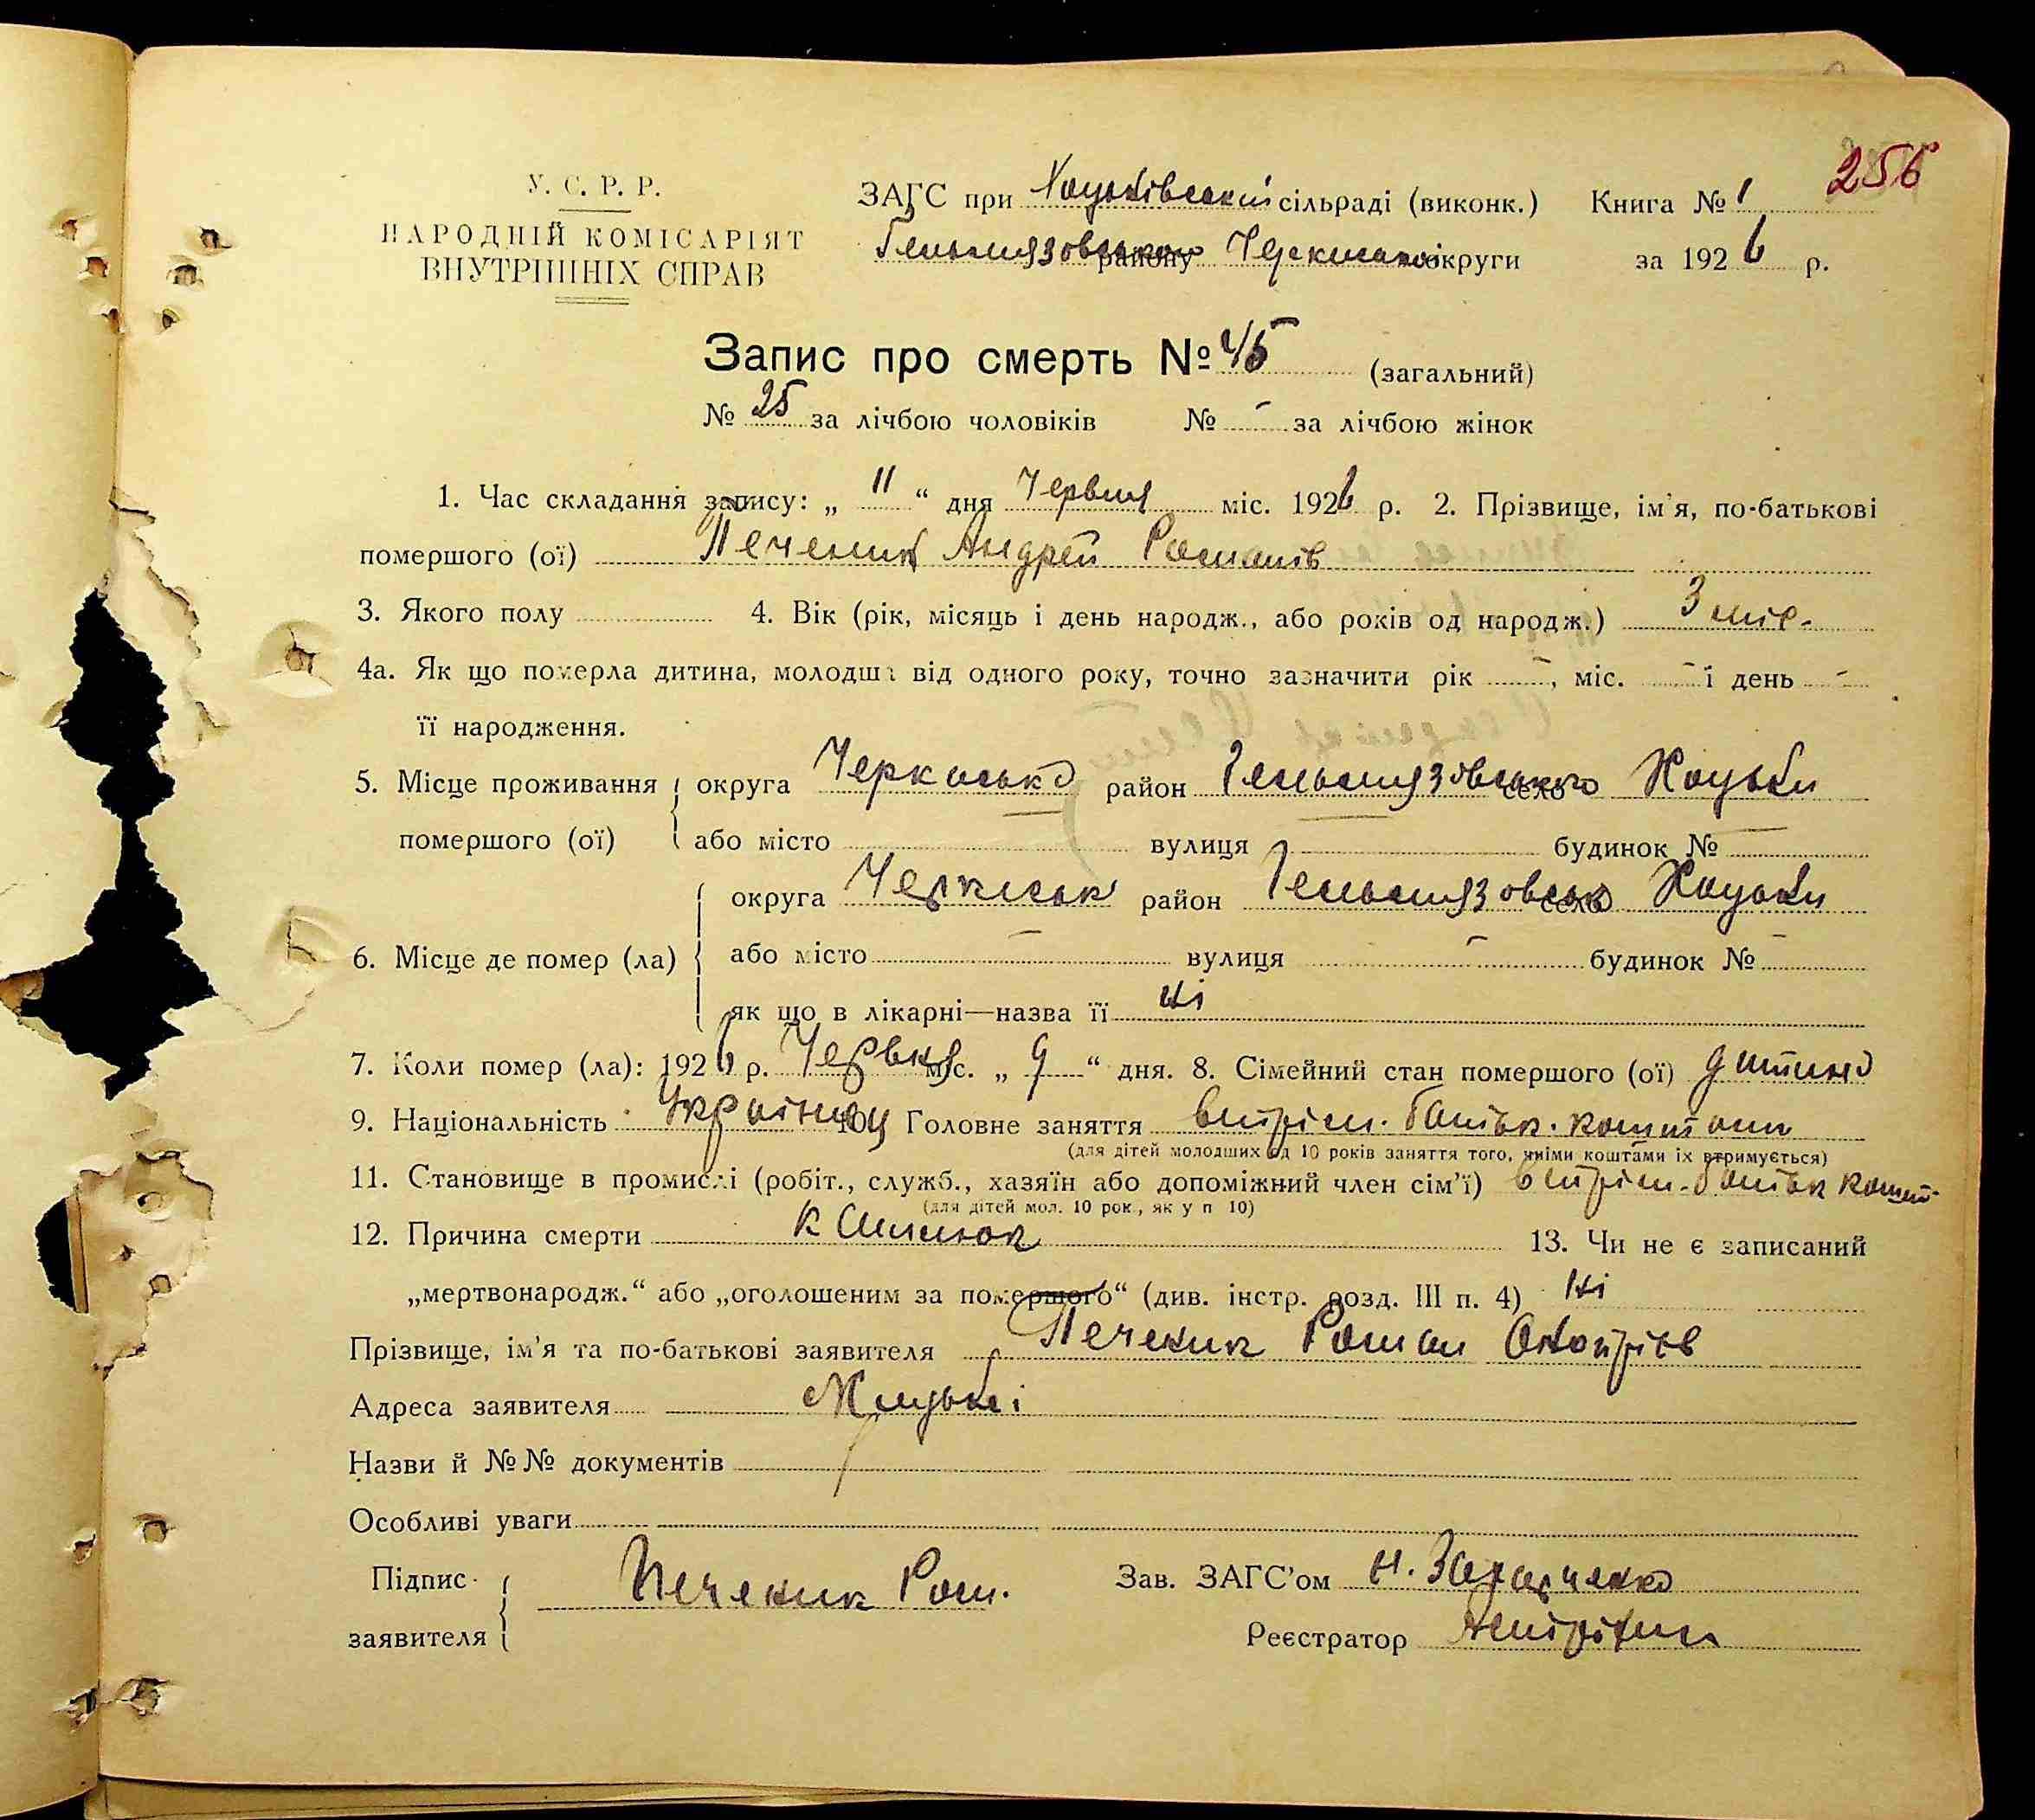 256
У. С. Р. Р.
НАРОДНІЙ КОМІСАРІЯТ
ВНУТРІШНІХ СПРАВ
ЗАГС при Хоцьківській сільраді (виконк.) Книга № 1
Гельмязовського району Черкаської округи за 1926 р.
Запис про смерть № 45 (загальний)
№ 25 за лічбою чоловіків № - за лічбою жінок
1. Час складання запису: „ 11 “ дня Червня міс. 1926 р. 2. Прізвище, ім'я, по-батькові
помершого (ої) Печеник Андрей Романів
3. Якого полу 4. Вік (рік, місяць і день народж., або років од народж.) 3 міс.
4а. Як що померла дитина, молодша від одного року, точно зазначити рік -, міс. - і день -
її народження.
5. Місце проживання округа Черкасько район Гельмязовського село Хоцьки
помершого (ої) або місто вулиця будинок №
округа Черкаськ район Гельмязовсько село Хоцьки
6. Місце де помер (ла) або місто - вулиця - будинок № -
як що в лікарні—назва її ні
7. Коли помер (ла): 1926 р. Червня міс. „ 9 “ дня. 8. Сімейний стан помершого (ої) дитина
9. Національність Українец 10. Головне заняття втрім. батьк. коштом
(для дітей молодших од 10 років заняття того, чиїми коштами їх втримується)
11. Становище в промислі (робіт., служб., хазяїн або допоміжний член сім'ї) втрім. батьк кошт.
(для дітей мол. 10 рок., як у п 10)
12. Причина смерти 13. Чи не є записаний
„мертвонародж.“ або „оголошеним за помершого“ (див. інстр. розд. III п. 4) ні
Прізвище, ім'я та по-батькові заявителя Печеник Роман
Адреса заявителя
Назви й №№ документів
Особливі уваги
Підпис Печеник Ром. Зав. ЗАГС'ом Н. Захарченко
заявителя Реєстратор